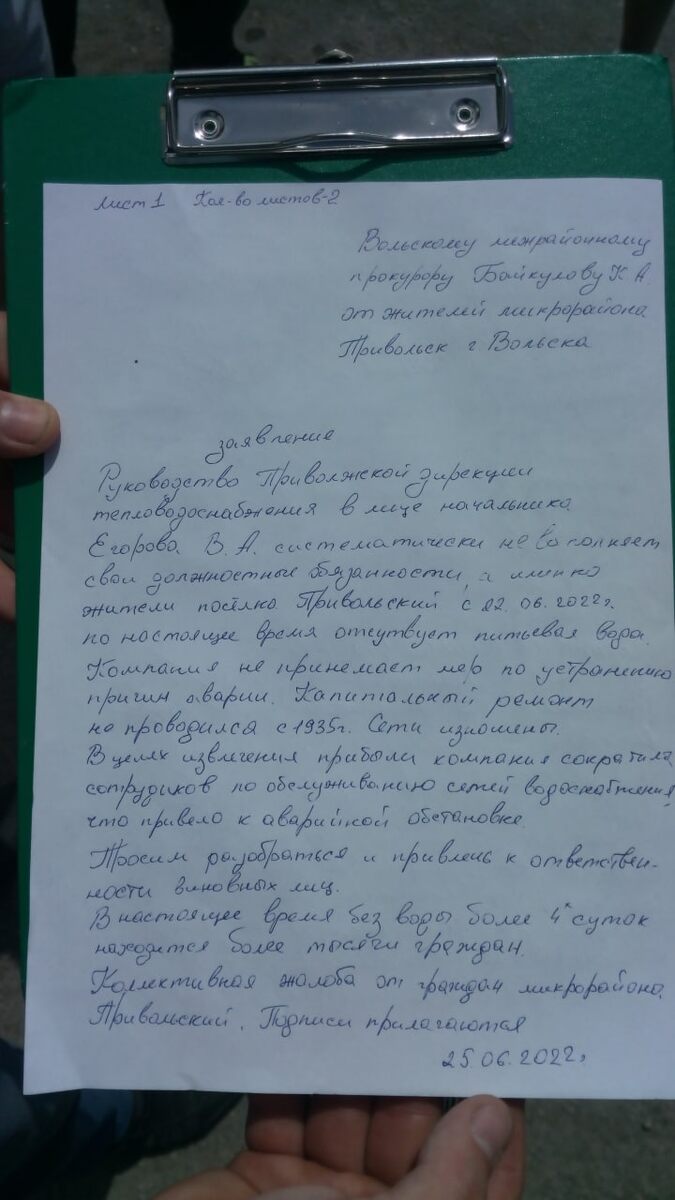 Лист 1 Кол-во листов-2
Вольскому межрайонному
прокурору Байкулову К А.
от жителей микрорайона
Привольск г Вольска
заявление
Руководство Приволжской дирекции
тепловодоснабжения в лице начальника
Егорова В. А. систематически не выполняет
свои должностные обязанности, а именно
жители посёлка Привольский с 22.06.2022г.
по настоящее время отсутвует питьевая вода.
Компания не принемает мер по устранению
причин аварии. Капитальный ремонт
не проводился с 1935г. Сети изношены.
В целях извлечения прибыли компания сократила
сотрудиков по обслуживанию сетей водоснабжения,
что привело к аварийной обстановке.
Просим разобраться и привлечь к ответствен-
ности виновных лиц.
В настоящее время без воды более 4х суток
находится более тысячи граждан.
Коллективная жалоба от граждан микрорайона
Привольский. Подписи прилагаются
25.06.2022г.